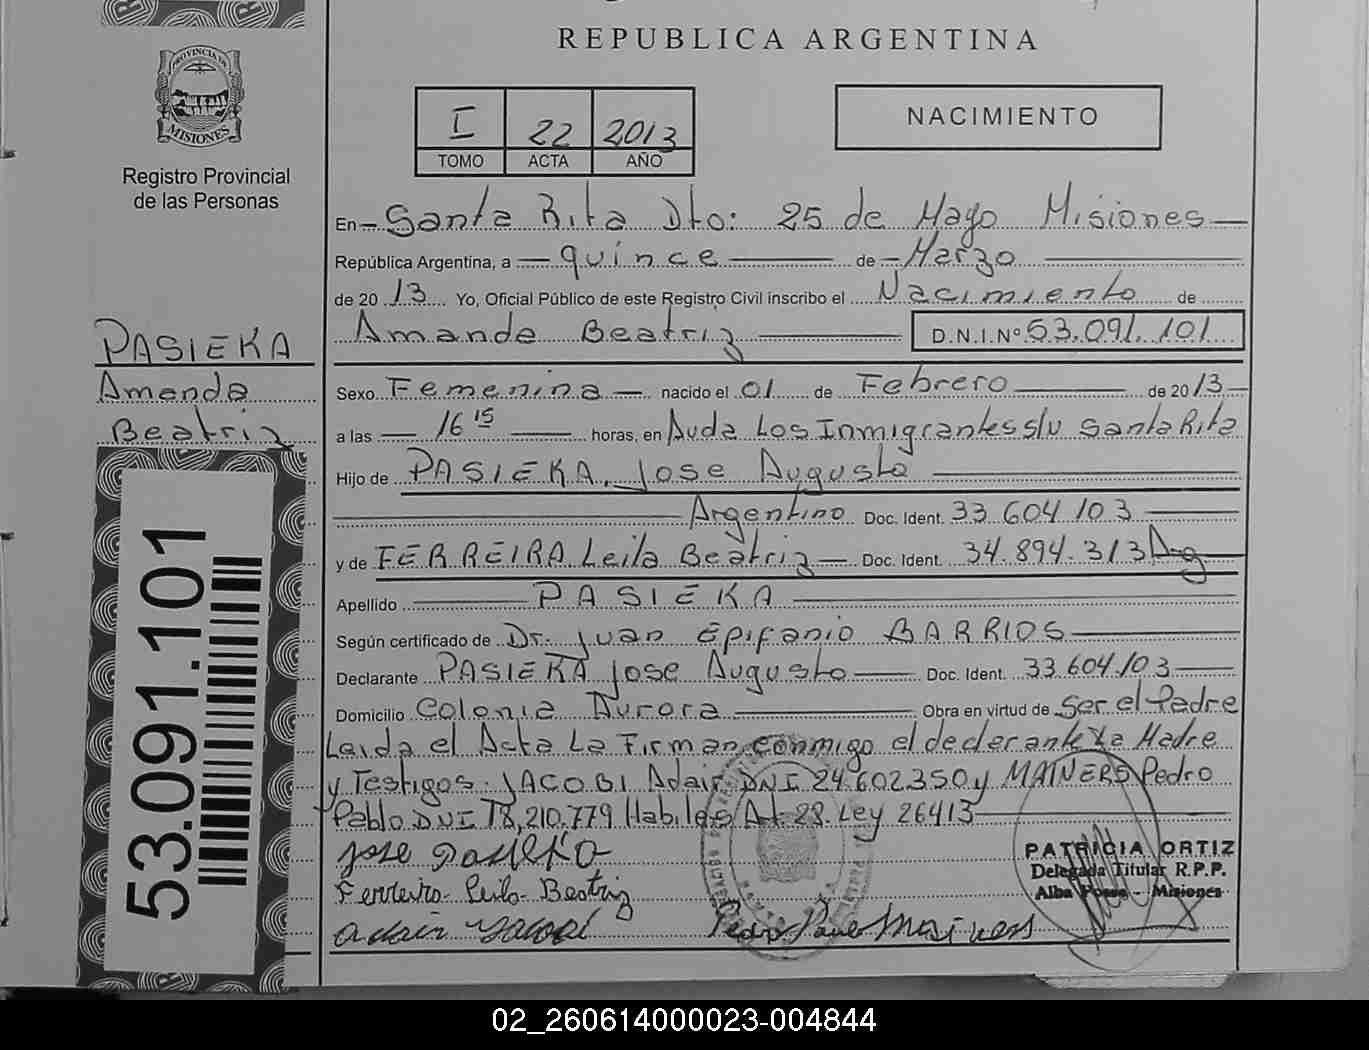 REPUBLICA ARGENTINA
PROVINCIA DE
MISIONES
Registro Provincial
de las Personas
I 22 2013
TOMO ACTA AÑO
NACIMIENTO
En Santa Rita Dto: 25 de Mayo Misiones
República Argentina, a quince de Marzo
de 2013 Yo, Oficial Público de este Registro Civil inscribo el Nacimiento de
Amanda Beatriz D.N.I.Nº 53.091.101
PASIEKA
Amanda
Beatriz
Sexo Femenina nacido el 01 de Febrero de 2013
a las 16 15 horas, en Avda Los Inmigrantes s/n Santa Rita
Hijo de PASIEKA, Jose Augusto
Argentino Doc. Ident. 33 604 103
y de FERREIRA Leila Beatriz Doc. Ident. 34.894.313 Arg
Apellido PASIEKA
Según certificado de Dr. Juan Epifanio BARRIOS
Declarante PASIEKA Jose Augusto Doc. Ident. 33.604.103
Domicilio Colonia Aurora Obra en virtud de Ser el Padre
Leida el Acta La Firman conmigo el declarante La Madre
y Testigos: JACOBI Adair DNI 24.602.350 y MAINERS Pedro
Pablo DNI 18,210.779 Habiles Art 28. Ley 26413
Jose Pasieka
Ferreira Leila Beatriz
Adair Jacobi
PATRICIA ORTIZ
Delegada Titular R.P.P.
Alba Posse - Misiones
53.091.101
02_260614000023-004844